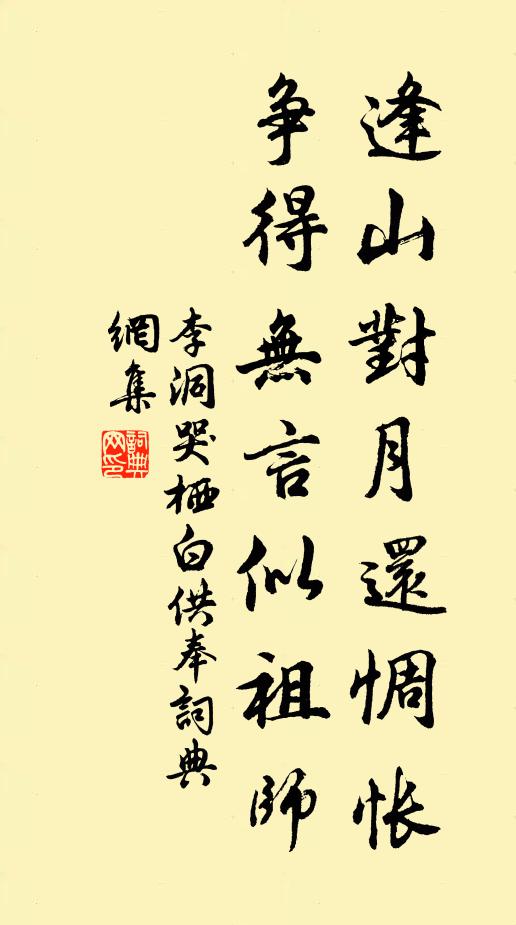 逢山對月還惆悵
爭得無言似祖師
李洞哭栖白供奉詞典
網集
詞典网印